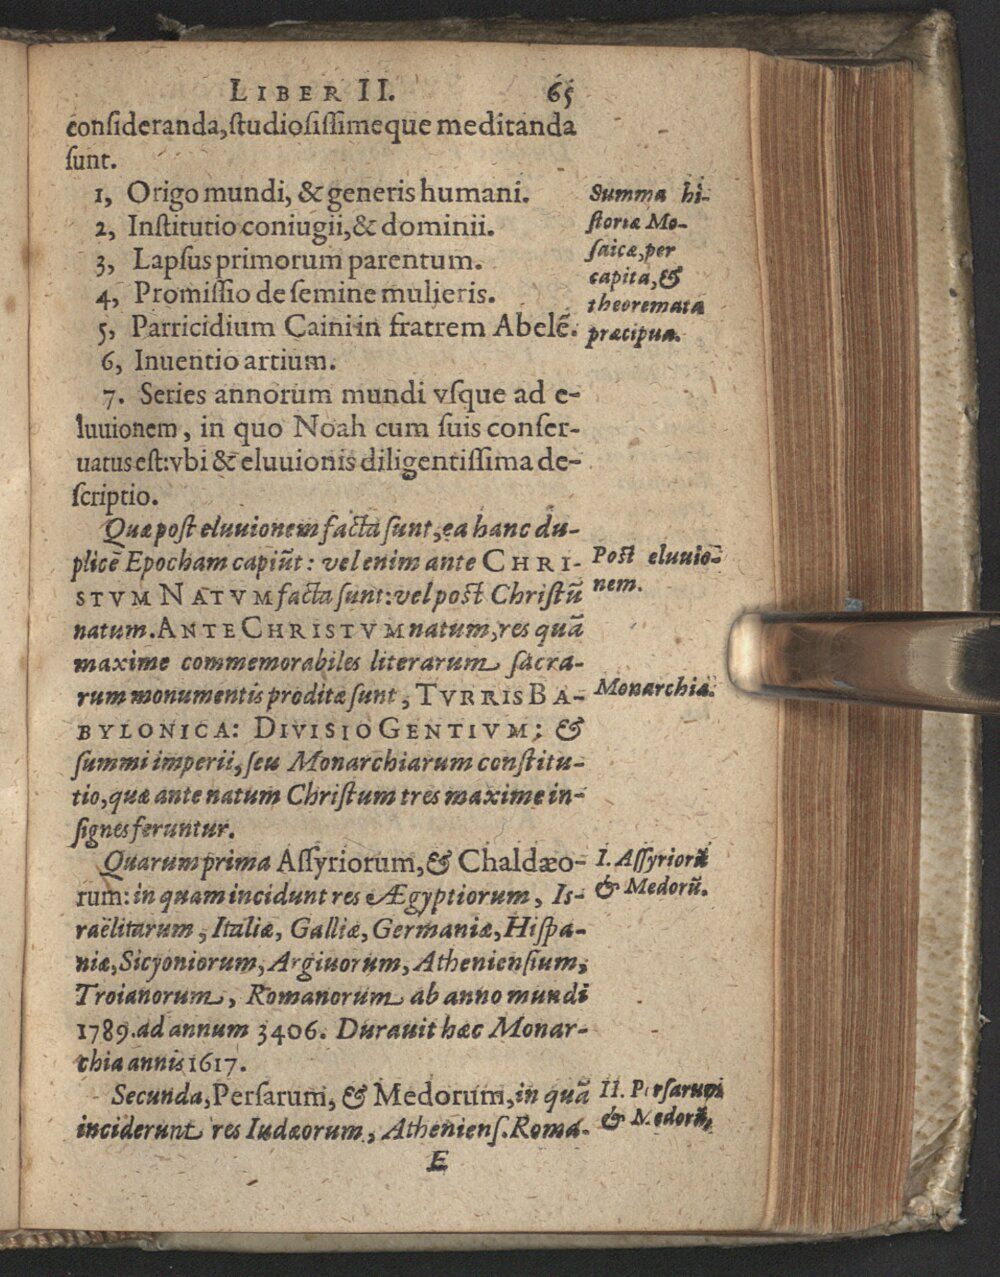 LIBER II. 65
consideranda, studiosissimeque meditanda
sunt.
1, Origo mundi, & generis humani.
2, Institutio coniugii, & dominii.
3, Lapsus primorum parentum.
4, Promissio de semine mulieris.
5, Parricidium Caini in fratrem Abelē.
6, Inuentio artium.
7. Series annorum mundi vsque ad e-
luuionem, in quo Noah cum suis conser-
uatus est: vbi & eluuionis diligentissima de-
scriptio.
Summa hi-
storiæ Mo-
saicæ, per
capita, &
theoremata
præcipua.
Quæ post eluuionem facta sunt, ea hanc du-
plicē Epocham capiūt: vel enim ante CHRI-
STVM NATVM facta sunt: vel post Christū
natum. ANTE CHRISTVM natum, res quā
maxime commemorabiles literarum sacra-
rum monumentis proditæ sunt, TVRRIS BA-
BYLONICA: DIVISIO GENTIVM: &
summi imperii, seu Monarchiarum constitu-
tio, quæ ante natum Christum tres maxime in-
signes feruntur.
Post eluuio-
nem.
Monarchiæ.
Quarum prima Assyriorum, & Chaldæo-
rum: in quam incidunt res Ægyptiorum, Is-
raëlitarum, Italiæ, Galliæ, Germaniæ, Hispa-
niæ, Sicyoniorum, Argiuorum, Atheniensium,
Troianorum, Romanorum ab anno mundi
1789. ad annum 3406. Durauit hæc Monar-
chia annis 1617.
I. Assyriorū
& Medorū.
Secunda, Persarum, & Medorum, in quā
inciderunt res Iudæorum, Atheniens. Roma-
II. Persarum
& Medorū,
E